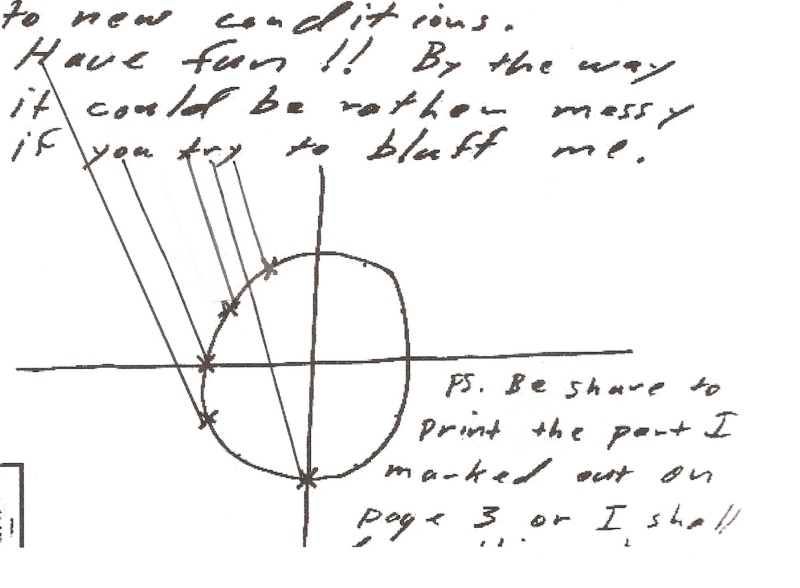 to new conditions.
Have fun!! By the way
it could be rather messy
if you try to bluff me.
PS. Be shure to
Print the part I
marked out on
page 3 or I shall